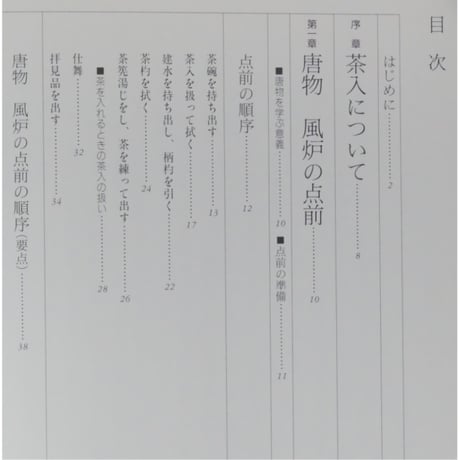 目次
はじめに……2
序章 茶入について……8
第一章 唐物 風炉の点前……10
■唐物を学ぶ意義……10 ■点前の準備……11
点前の順序……12
茶碗を持ち出す……13
茶入を扱って拭く……17
建水を持ち出し、柄杓を引く……22
茶杓を拭く……24
茶筅湯じをし、茶を練って出す……26
■茶を入れるときの茶入の扱い……28
仕舞……32
拝見品を出す……34
唐物 風炉の点前の順序(要点)……38